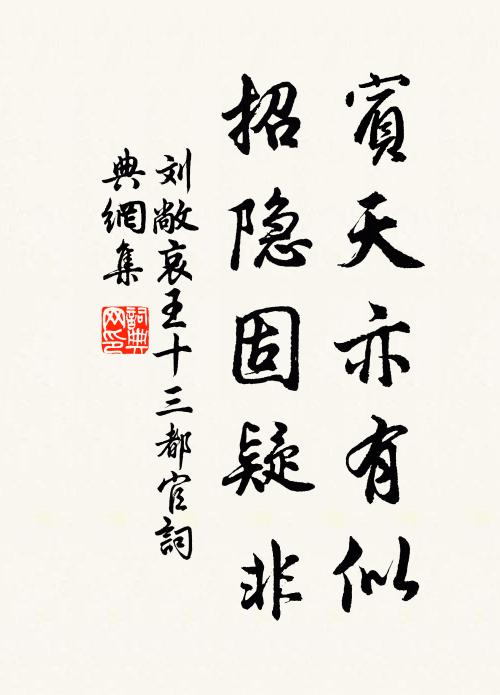 賓天亦有似
招隐固疑非
刘敞哀王十三都官詞
典網集
詞典网印